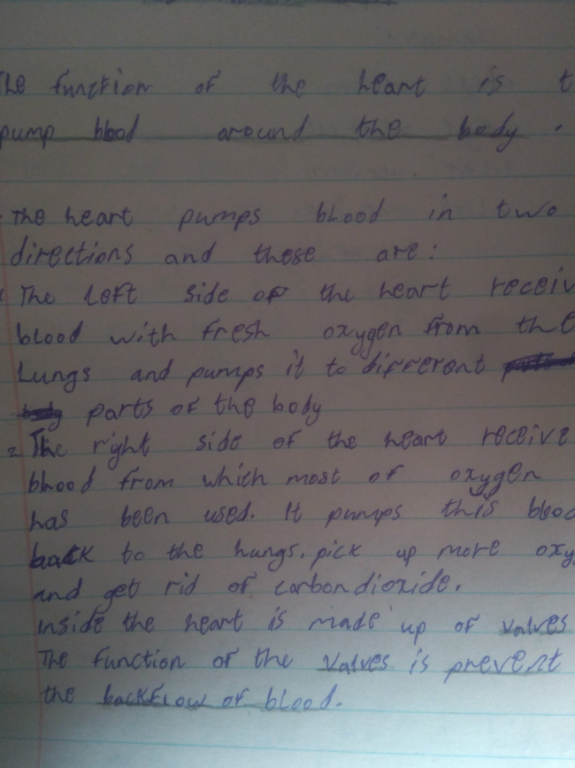 The function of the heart is t
pump blood around the body.
The heart pumps blood in two
directions and these are:
The left side of the heart receiv
blood with fresh oxygen from the
Lungs and pumps it to different
parts of the body
2 The right side of the heart receive
blood from which most of oxygen
has been used. It pumps this bloo
back to the lungs. pick up more oxy
and get rid of carbondioxide.
inside the heart is made up of valves
The function of the valves is prevent
the backflow of blood.